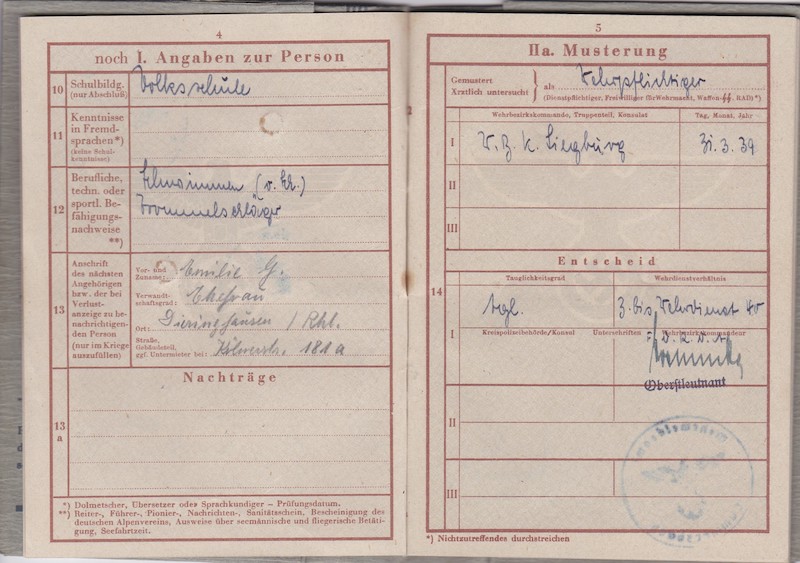 4
noch I. Angaben zur Person
10
Schulbildg.
(nur Abschluß)
Volksschule
11
Kenntnisse
in Fremd-
sprachen*)
(keine Schul-
kenntnisse)
12
Berufliche,
techn. oder
sportl. Be-
fähigungs-
nachweise
**)
Schwimmen (v. Kh.)
Trommelschläger
13
Anschrift
des nächsten
Angehörigen
bzw. der bei
Verlust-
anzeige zu be-
nachrichtigen-
den Person
(nur im Kriege
auszufüllen)
Vor- und
Zuname:
Emilie G.
Verwandt-
schaftsgrad:
Ehefrau
Ort:
Dieringhausen / Rhl.
Straße,
Gebäudeteil,
ggf. Untermieter bei:
Kölnerstr. 181 a
13
a
Nachträge
*) Dolmetscher, Übersetzer oder Sprachkundiger – Prüfungsdatum.
**) Reiter-, Führer-, Pionier-, Nachrichten-, Sanitätsschein, Bescheinigung des
deutschen Alpenvereins, Ausweise über seemännische und fliegerische Betäti-
gung, Seefahrtzeit.
5
IIa. Musterung
Gemustert
Ärztlich untersucht
als
Wehrpflichtiger
(Dienstpflichtiger, Freiwilliger für Wehrmacht, Waffen-SS, RAD)*)
Wehrbezirkskommando, Truppenteil, Konsulat
Tag, Monat, Jahr
I
W. B. K. Siegburg
31. 3. 39
II
III
Entscheid
14
Tauglichkeitsgrad
Wehrdienstverhältnis
I
tgl.
z. bis. Wehrdienst
Kreispolizeibehörde/Konsul
Unterschriften
Wehrbezirkskommandeur
Oberstleutnant
II
III
*) Nichtzutreffendes durchstreichen